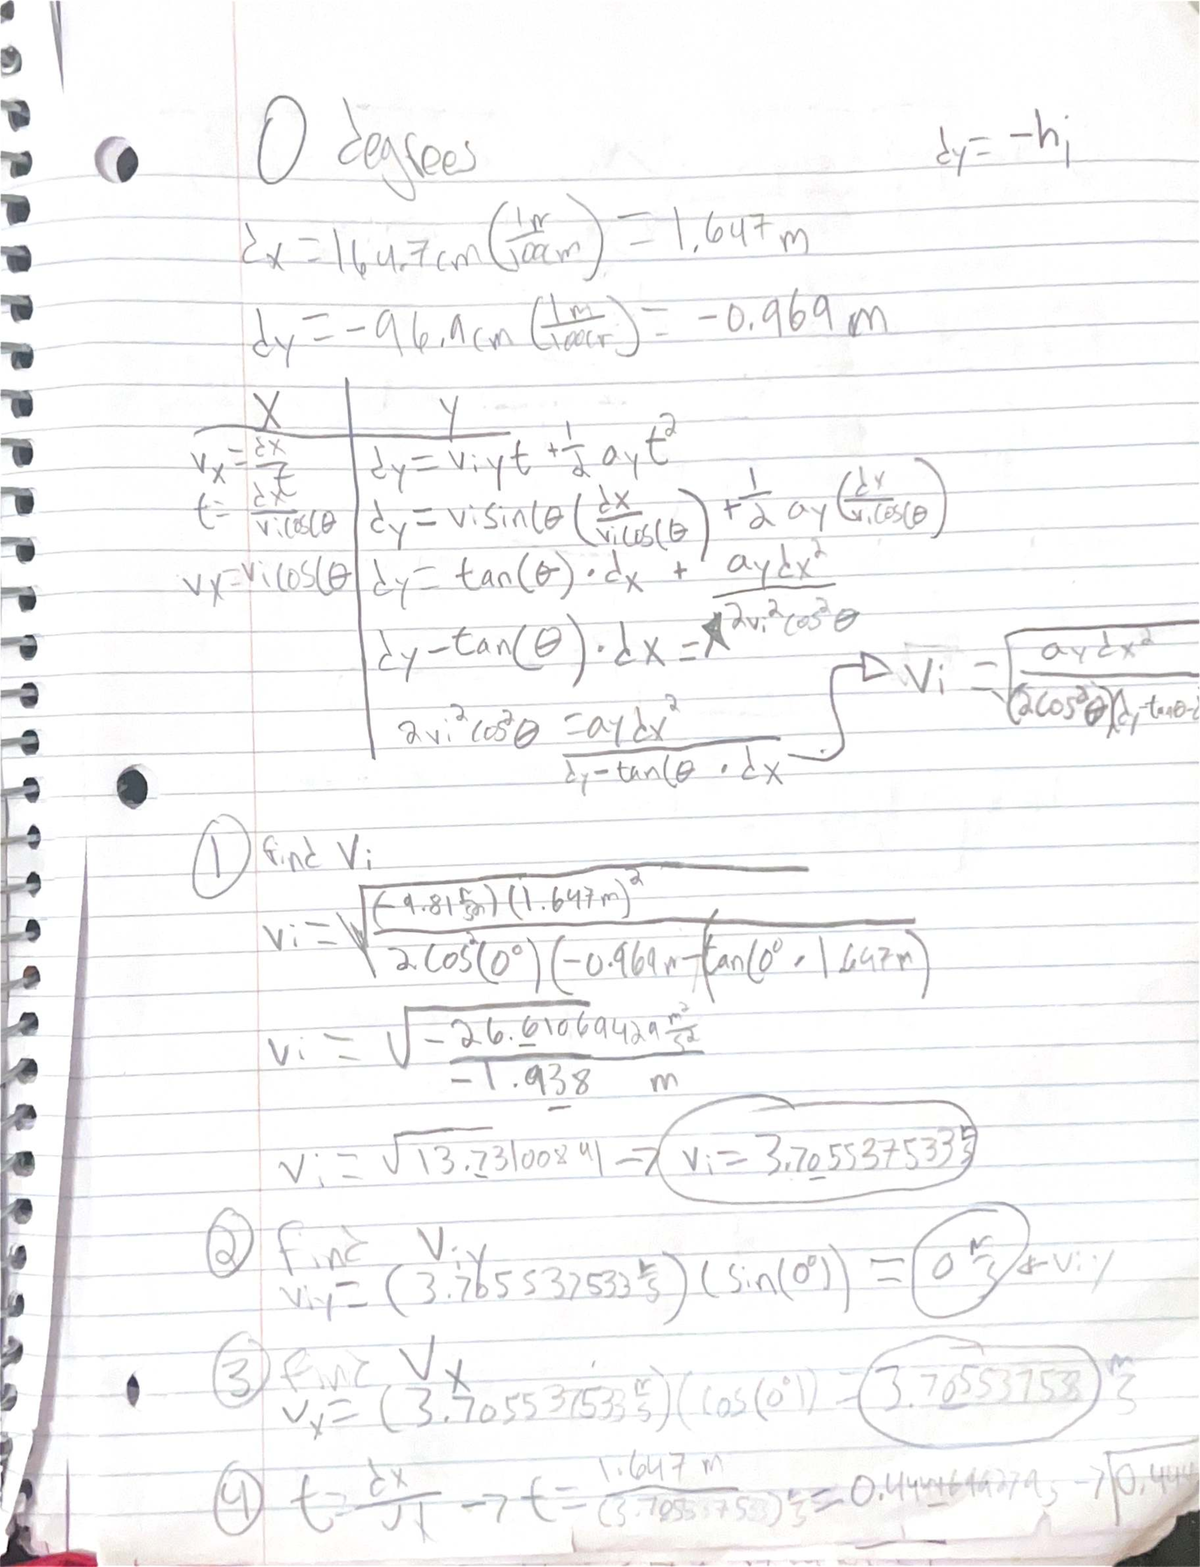 0 degrees
dy = -hi
dx = 164.7cm (1m/100cm) = 1.647 m
dy = -96.9cm (1m/100cm) = -0.969 m
X | Y
vx = dx/t | dy = viyt + 1/2 ayt²
t = dx/vicos(θ | dy = visin(θ (dx/vicos(θ) + 1/2 ay (dx/vicos(θ)
vx = vicos(θ | dy = tan(θ) · dx + aydx²/2vi²cos²θ
dy - tan(θ) · dx =
2vi²cos²θ = aydx²/dy - tan(θ · dx
→ Vi = √aydx²/(2cos²θ)(dy - tanθ ·
① find Vi
vi = √(-9.81 m/s²)(1.647m)²/2cos²(0°)(-0.969m - tan(0° · 1.647m)
vi = √-26.61069429 m²/s²/-1.938 m
vi = √13.73100841 → vi = 3.705537533 m/s
② find Viy
viy = (3.705537533 m/s)(sin(0°)) = 0 m/s ← viy
③ find Vx
vx = (3.705537533 m/s)(cos(0°)) = 3.70553753 m/s
④ t = dx/vx → t = 1.647 m/(3.70553753) m/s = 0.444 → 0.444